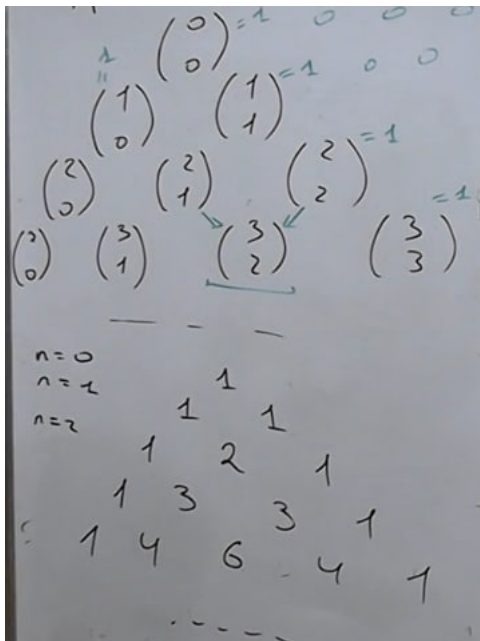 (0 0) = 1 0 0 0
1 =
(1 0) (1 1) = 1 0 0
(2 0) (2 1) (2 2) = 1
(3 0) (3 1) (3 2) (3 3) = 1
n=0
n=1
n=2
1
1 1
1 2 1
1 3 3 1
1 4 6 4 1